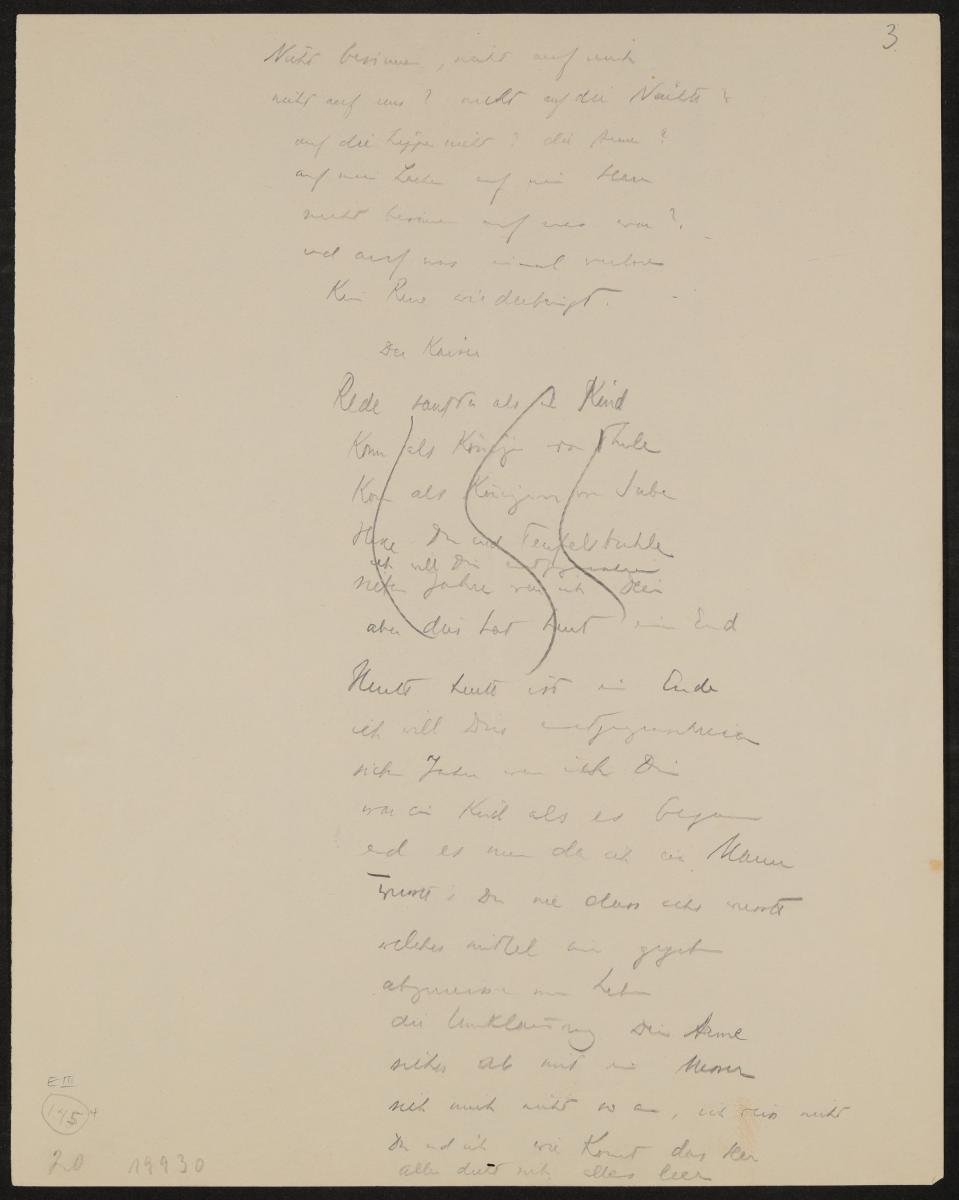 3
Nicht besinnen, nicht auf mich
nicht auf uns? nicht auf die Nächte?
auf die Lippe nicht? die Arme?
auf mein Lachen auf mein Haar
nicht besinnen auf was war?
und auf was einmal verloren
Kein Reue wiederbringt.
Der Kaiser
Rede sanfter als ein Kind
Komm als Königin von Thule
Komm als Königin von Saba
Hexe Du und Teufelsbuhle
ich will Dir entgegenschrein
sieben Jahre war ich Dein
aber dies hat heut ein End
Heute heute ist ein Ende
ich will Dirs entgegenschreien
sieben Jahre war ich Dein
war ein Kind als es begann
end es nun da ich ein Mann
wusstest Du nie dass ichs wusste
welches Mittel mir gegeben
abzumessen mein Leben
die Umklammerung Deiner Arme
sieh mich nicht so an, ich weiss nicht
Du und ich wie kommt das her
alles dreht sich alles leer
E III
175
4
20 19930